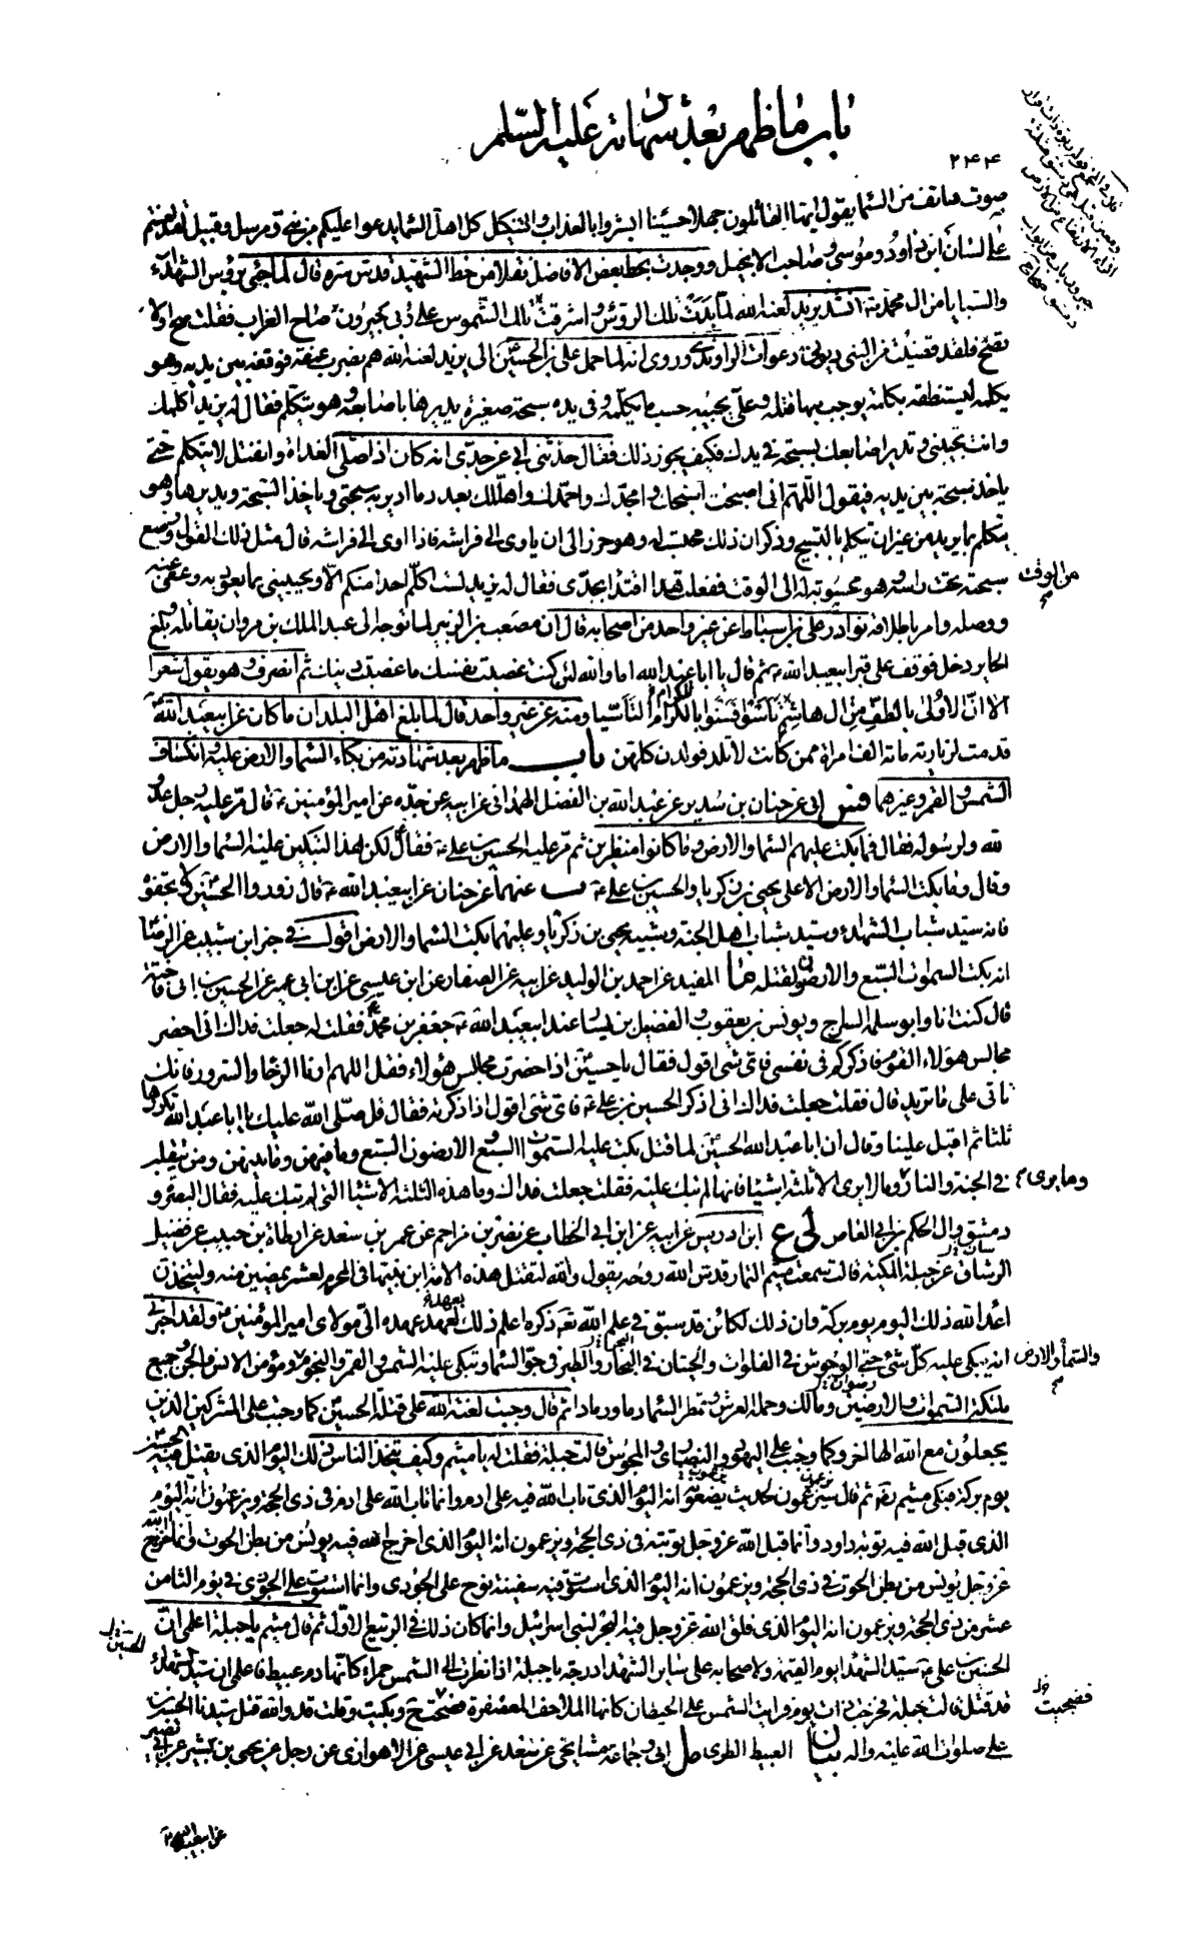 باب ما ظهر بعد شهادته عليه السلم
٢٤٤
صوت هاتف من السماء يقول ايها القائلون جهلا حسينا ابشروا بالعذاب والتنكيل كل اهل السماء يدعوا عليكم من نبي ومرسل وقبيل لقد لعنتم
على لسان ابن داود وموسى وصاحب الانجيل ووجدت بخط بعض الافاضل نقلا من خط الشهيد قدس سره قال لما جئ برؤس الشهداء
والسبايا من ال محمد انشد يزيد لعنه الله لما بدت تلك الرؤس واشرقت تلك الشموس على ربى جيرون صاح الغراب فقلت صح او لا
تصح فلقد قضيت من النبي ديوني دعوات الراوندي وروى انه لما حمل علي بن الحسين الى يزيد لعنه الله هم بضرب عنقه فوقفه بين يديه وهو
يكلمه ليستنطقه بكلمة يوجب بها قتله وعلي يجيبه حسب ما يكلمه وفي يده سبحة صغيرة يديرها باصابعه وهو يتكلم فقال له يزيد اكلمك
وانت تجيبني وتدير اصابعك بسبحة في يدك فكيف يجوز ذلك فقال حدثني ابي عن جدي انه كان اذا صلى الغداة وانفتل لا يتكلم حتى
ياخذ سبحة بين يديه فيقول اللهم اني اصبحت اسبحك وامجدك واحمدك واهللك بعدد ما ادير به سبحتي وياخذ السبحة ويديرها وهو
يتكلم بما يريد من غير ان يتكلم بالتسبيح وذكر ان ذلك محتسب له وهو حرز الى ان ياوى الى فراشه فاذا اوى الى فراشه قال مثل ذلك القول ووضع
سبحته تحت راسه وهو محسوبة له الى الوقت ففعلت هذا اقتداء بجدي فقال له يزيد لست اكلم احدا منكم الا ويجيبني بما يعوذ به وعفى عنه
من الوقت
ووصله وامر باطلاقه نوادر علي بن اسباط عن غير واحد من اصحابه قال ان مصعب بن الزبير لما توجه الى عبد الملك بن مروان يقاتله وبلغ
الحاير دخل فوقف على قبر ابيعبد الله ثم قال يا ابا عبد الله اما والله لئن كنت غصبت نفسك ما غصبت دينك ثم انصرف وهو يقول شعرا
الا ان الاولى بالطف من ال هاشم تاسوا فسنوا للكرام التاسيا ومنه عن غير واحد قال لما بلغ اهل البلدان ما كان من ابيعبد الله
قدمت لزيارته مائة الف امراة ممن كانت لا تلد فولدن كلهن باب ما ظهر بعد شهادته من بكاء السماء والارض عليه وانكساف
الشمس والقمر وغيرهما فس ابي عن حنان بن سدير عن عبد الله بن الفضل الهمداني عن ابيه عن جده عن امير المؤمنين قال مر عليه رجل عدو
لله ولرسوله فقال فما بكت عليهم السماء والارض وما كانوا منظرين ثم مر عليه الحسين بن علي فقال لكن هذا لتبكين عليه السماء والارض
وقال وما بكت السماء والارض الا على يحيى بن زكريا والحسين بن علي ب عنهما عن حنان عن ابيعبد الله قال زوروا الحسين ولا تجفوه
فانه سيد شباب الشهداء وسيد شباب اهل الجنة وشبيه يحيى بن زكريا وعليهما بكت السماء والارض اقول في خبر ابن شبيب عن الرضا
انه بكت السموات السبع والارضون لقتله ما المفيد عن احمد بن الوليد عن ابيه عن الصفار عن ابن عيسى عن ابن ابي عمير عن الحسين بن ابي فاختة
قال كنت انا وابو سلمة السراج ويونس بن يعقوب والفضيل بن يسار عند ابيعبد الله جعفر بن محمد فقلت له جعلت فداك اني احضر
مجالس هؤلاء القوم فاذكركم في نفسي فاي شئ اقول فقال يا حسين اذا حضرت مجالس هؤلاء فقل اللهم ارنا الرخا والسرور فانك
تاتي على ما تريد قال فقلت جعلت فداك اني اذكر الحسين بن علي فاي شئ اقول اذا ذكرته فقال قل صلى الله عليك يا ابا عبد الله تكررها
ثلثا ثم اقبل علينا وقال ان ابا عبد الله الحسين لما قتل بكت عليه السموات السبع والارضون السبع وما فيهن وما بينهن ومن يتقلب
في الجنة والنار وما لا يرى الا ثلثة اشياء فانها لم تبك عليه فقلت جعلت فداك وما هذه الثلثة الاشياء التي لم تبك عليه فقال البصرة و
وما يرى
دمشق وال الحكم بن ابي العاص لي ع ابن ادريس عن ابيه عن ابن ابي الخطاب عن نصر بن مزاحم عن عمر بن سعد عن ارطاة بن حبيب عن فضيل
الرسان عن جبلة المكية قالت سمعت ميثم التمار قدس الله روحه يقول والله لتقتل هذه الامة ابن نبيها في المحرم لعشر يمضين منه وليتخذن
اعداء الله ذلك اليوم يوم بركة وان ذلك لكائن قد سبق في علم الله تعه ذكره اعلم ذلك بعهد عهده الي مولاي امير المؤمنين ولقد اخبرني
انه يبكي عليه كل شئ حتى الوحوش في الفلوات والحيتان في البحار والطير في جو السماء وتبكي عليه الشمس والقمر والنجوم ومؤمنو الانس والجن وجميع
والسماء والارض
ملئكة السموات والارضين ورضوان ومالك وحملة العرش وتمطر السماء دما ورمادا ثم قال وجبت لعنة الله على قتلة الحسين كما وجبت على المشركين الذين
يجعلون مع الله الها اخر وكما وجبت على اليهود والنصارى والمجوس قالت جبلة فقلت له يا ميثم وكيف يتخذ الناس ذلك اليوم الذي يقتل فيه الحسين
يوم بركة فبكى ميثم ره ثم قال سيزعمون لحديث يضعونه انه اليوم الذي تاب الله فيه على ادم وانما تاب الله على ادم في ذي الحجة ويزعمون انه اليوم
الذي قبل الله فيه توبة داود وانما قبل الله عز وجل توبته في ذي الحجة ويزعمون انه اليوم الذي اخرج الله فيه يونس من بطن الحوت وانما اخرج الله
عز وجل يونس من بطن الحوت في ذي الحجة ويزعمون انه اليوم الذي استوت فيه سفينة نوح على الجودي وانما استوت على الجودي في يوم الثامن
عشر من ذي الحجة ويزعمون انه اليوم الذي فلق الله عز وجل فيه البحر لبني اسرائيل وانما كان ذلك في الربيع الاول ثم قال ميثم يا جبلة اعلمي ان
الحسين بن علي سيد الشهداء يوم القيمة ولاصحابه على سائر الشهداء درجة يا جبلة اذا نظرت الى الشمس حمراء كانها دم عبيط فاعلمي ان سيد الشهداء
قد قتل قالت جبلة فخرجت ذات يوم فرايت الشمس على الحيطان كانها الملاحف المعصفرة فصحت وبكيت وقلت قد والله قتل سيدنا الحسين بن
فضججت
علي صلوات الله عليه واله بيان العبيط الطري مل ابي وجماعة مشايخي عن سعد عن ابي عيسى عن الاهوازي عن رجل عن يحيى بن بشير عن ابي بصير
عن ابيعبد الله